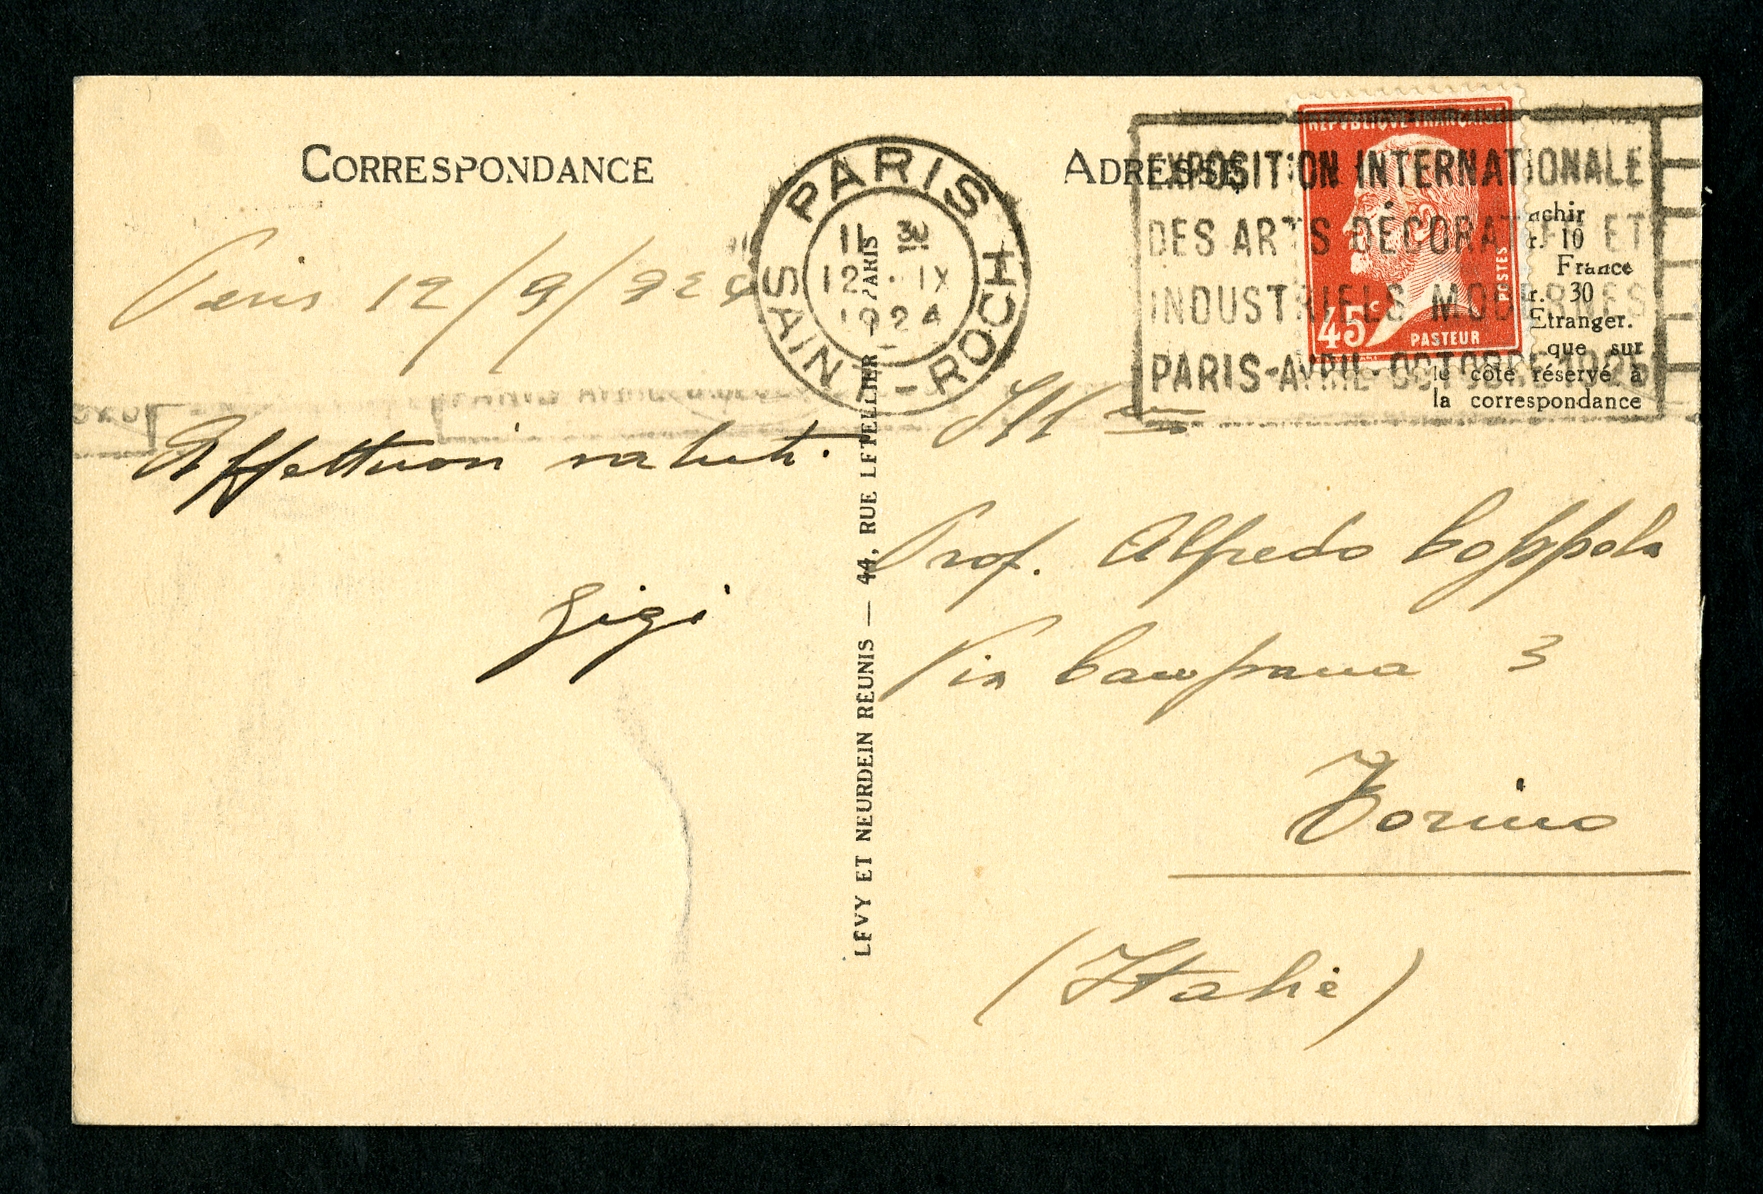 CORRESPONDANCE
Paris 12/9/924
Affettuosi saluti.
Gigi
PARIS
SAINT-ROCH
11 30
12 · IX
1924
LÉVY ET NEURDEIN RÉUNIS — 44, RUE LETELLIER PARIS
ADRESSE
EXPOSITION INTERNATIONALE
DES ARTS DÉCORATIFS ET
INDUSTRIELS MODERNES
PARIS-AVRIL-OCTOBRE 1925
RÉPUBLIQUE FRANÇAISE
POSTES
45c
PASTEUR
10
France
30
Etranger.
que sur
le côté réservé à
la correspondance
Prof. Alfredo Coppola
Via Campana 3
Torino
(Italie)